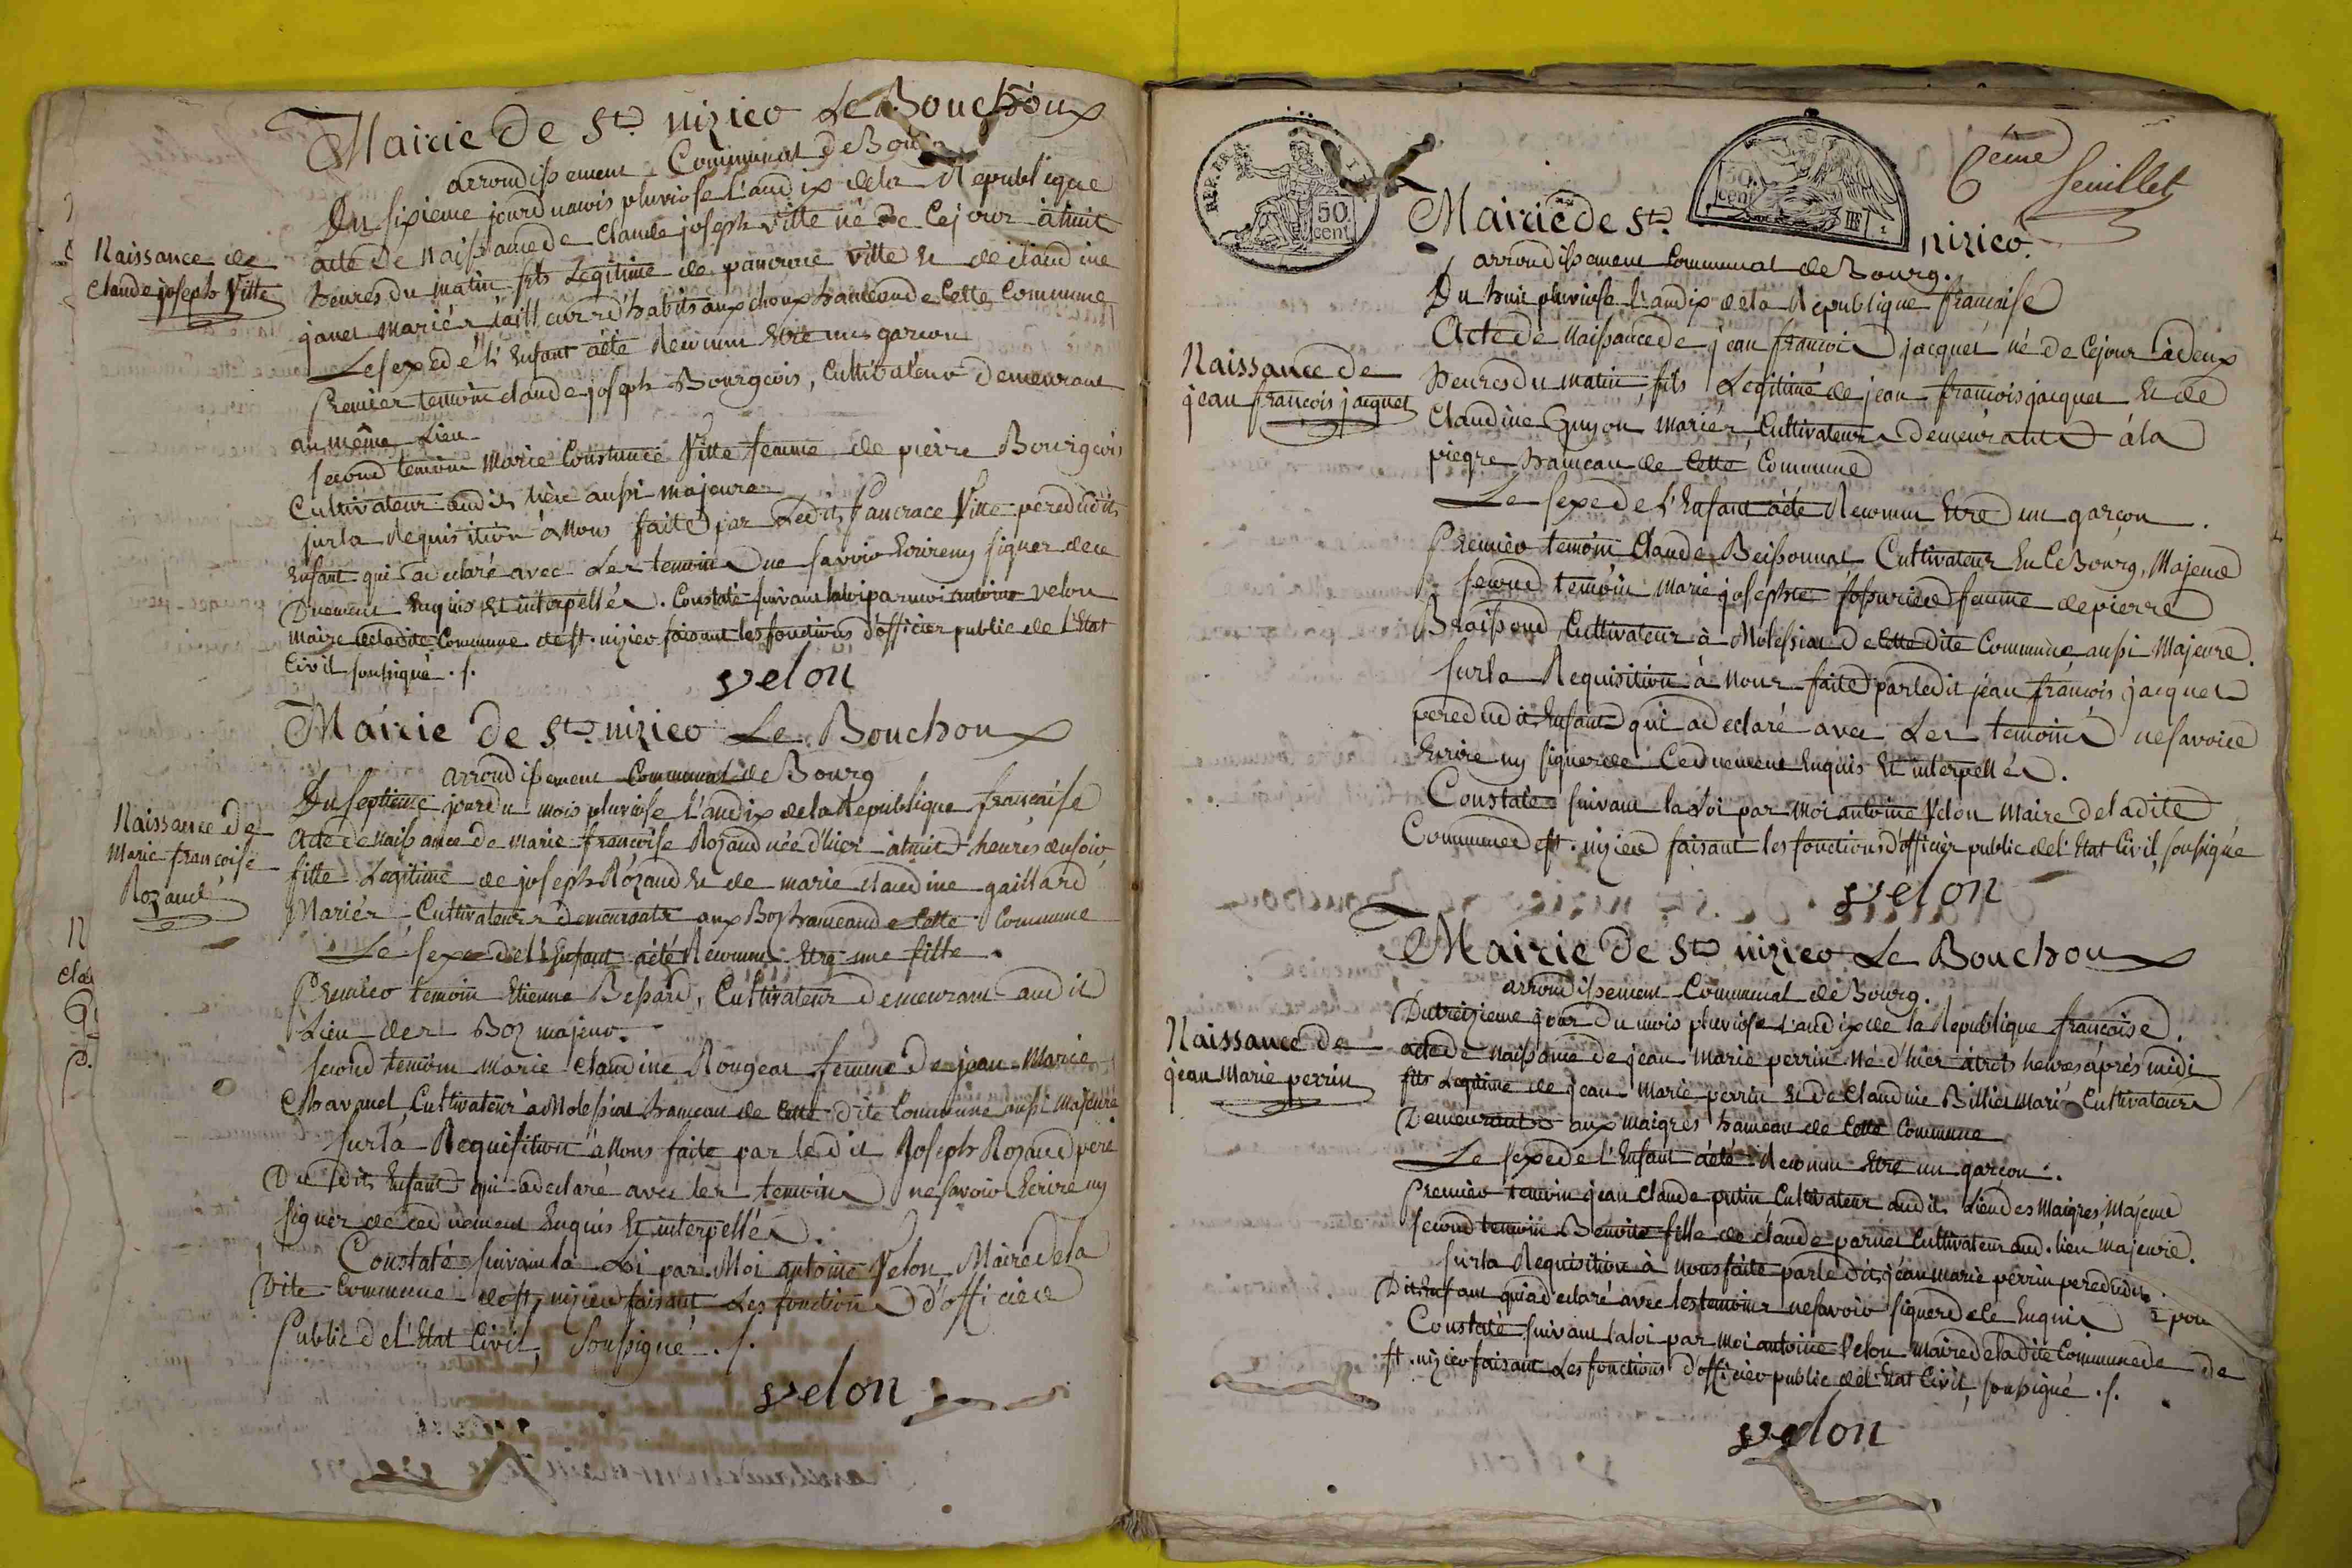 Mairie De St. nizier Le Bouchoux
arrondissement Communal De Bourg
Du sixieme jour du mois pluviose l'an dix de la Republique
Naissance de
Claude joseph Vitte
acte De Naissance de Claude joseph vitte né De Cejour à huit
heures du matin fils Legitime de pancrace vitte et de claudine
janet mariés tailleur d'habits aux choux hameau de Cette Commune
Le sexe de l'Enfant a été Reconnu Etre un garcon
Premier temoin claude joseph Bourgeois, Cultivateur Demeurant
au même Lieu
second temoin Marie Constance Vitte femme de pierre Bourgeois
Cultivateur audit lieu aussi majeure
sur la Requisition à Nous faite par Ledit Pancrace Vitte pere dudit
Enfant qui a declaré avec Les temoins ne savoir Ecrire ny signer de ce
Duement Enquis Et interpellés. Constaté suivant la loi par moi antoine velon
maire de ladite Commune de st. nizier faisant les fonctions d'officier public de l'Etat
Civil soussigné ./.
velon
Mairie De St. nizier Le Bouchoux
arrondissement Communal de Bourg
Du septieme jour du mois pluviose l'an dix de la Republique francaise
Naissance De
Marie francoise
Rozand
Acte de naissance de Marie francoise Rozand née d'hier à huit heures du soir
fille Legitime de joseph Rozand et de marie claudine gaillard
Mariés Cultivateurs demeurants aux Boz hameau de Cette Commune
Le sexe de l'Enfant a été Reconnu Etre une fille.
Premier temoin Etienne Bessard, Cultivateur Demeurant audit
Lieu des Boz majeur.
second temoin Marie Claudine Rougeat femme de jean Marie
Chavanel Cultivateur à Molessiat hameau de Cette dite Commune aussi majeure
sur la Requisition à Nous faite par le dit Joseph Rozand pere
Du dit Enfant qui a declaré avec les temoins ne savoir Ecrire ny
signer de ce duement Enquis Et interpellés.
Constaté suivant la Loi par Moi antoine Velon Maire De la
Dite Commune de st. nizier faisant Les fonctions d'officier
Public de l'Etat Civil, soussigné ./.
velon
6eme feuillet
REP. FRA.
50
cent
50
cent
Mairie de St. nizier
arrondissement Communal de Bourg.
Du huit pluviose l'an dix de la Republique francaise
Naissance de
jean francois jacquet
Acte de Naissance de jean francois jacquet né de Cejour à deux
heures du matin, fils Legitime de jean francois jacquet Et de
Claudine Guyon mariés, Cultivateurs Demeurants à la
piegre hameau de Cette Commune
Le sexe de l'Enfant a été Reconnu Etre un garcon.
Premier temoin Claude Beissonnat Cultivateur En Ce Bourg, Majeur
second temoin marie josephte femme de pierre
Broissond Cultivateur à Molessiat De Cette dite Commune aussi Majeure.
sur la Requisition à Nous faite par ledit jean francois jacquet
pere dudit Enfant qui a declaré avec Les temoins ne savoir
Ecrire ny signer de Ce duement Enquis Et interpellés.
Constaté suivant la Loi par Moi antoine Velon Maire de ladite
Commune de st. nizier faisant les fonctions d'officier public de l'Etat Civil soussigné
velon
Mairie de St. nizier Le Bouchoux
arrondissement Communal de Bourg.
Du treizieme jour du mois pluviose l'an dix de la Republique francaise.
Naissance de
jean Marie perrin
acte de naissance de jean marie perrin Né d'hier à trois heures après midi
fils Legitime de jean Marie perrin et de Claudine Billiet Mariés Cultivateurs
Demeurants aux maigres hameau de Cette Commune
Le sexe de l'Enfant a été Reconnu Etre un garcon.
Premier temoin jean Claude putin Cultivateur audit Lieu des Maigres, Majeur
second temoin Benoite fille de claude parnet Cultivateur aud. lieu, majeure.
sur la Requisition à nous faite par le dit jean marie perrin pere dudu
Dit Enfant qui a declaré avec les temoins ne savoir signer de Ce Enquis
Constaté suivant la loi par moi antoine Velon maire de la dite Commune de de
st. nizier faisant Les fonctions d'officier public de l'Etat Civil, soussigné ./.
velon